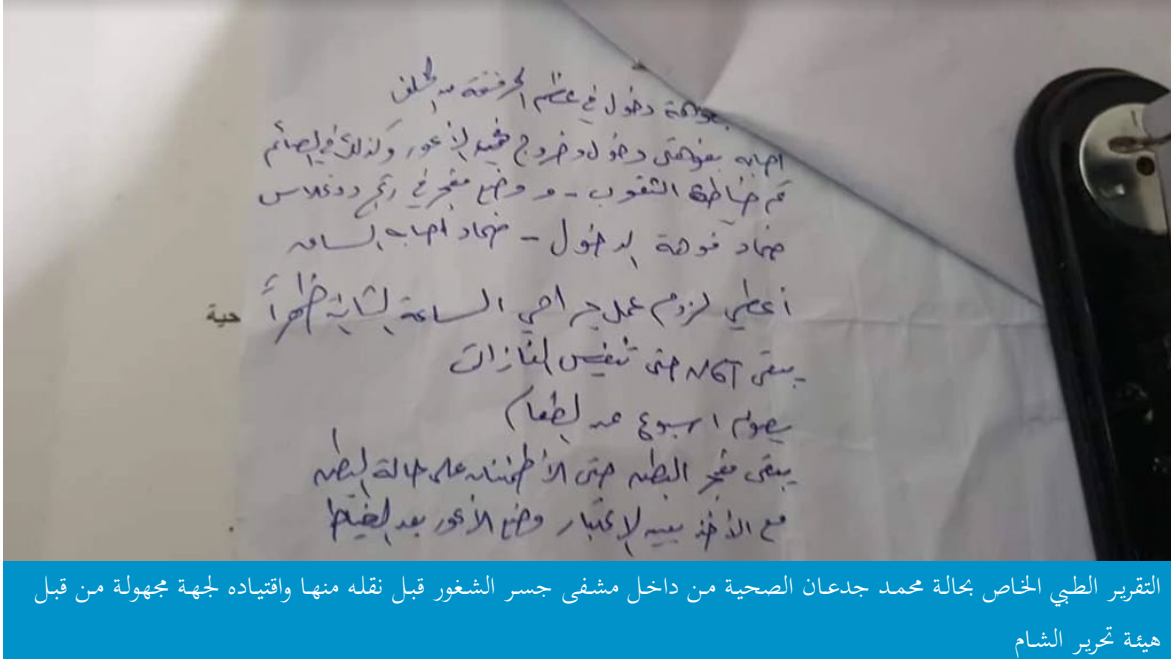 بفوهة دخول في عظم الحرقفة من الخلف
اصابه بفوهتي دخول وخروج في الأعور وكذلك في الصائم
تم خياطة الثقوب - و وضع مفجر في رتج دوغلاس
ضماد فوهة الدخول - ضماد اصابه الساق
أعطي لزوم عمل جراحي الساعة الثانية ظهراً
حية
يبقى NGT حتى تنفيس الغازات
يصوم اسبوع عن الطعام
يبقى مفجر البطن حتى الأطمئنان على حالة البطن
مع الأخذ بعين الإعتبار وضع الأعور بعد الخياطة
التقرير الطبي الخاص بحالة محمد جدعان الصحية من داخل مشفى جسر الشغور قبل نقله منها واقتياده لجهة مجهولة من قبل
هيئة تحرير الشام